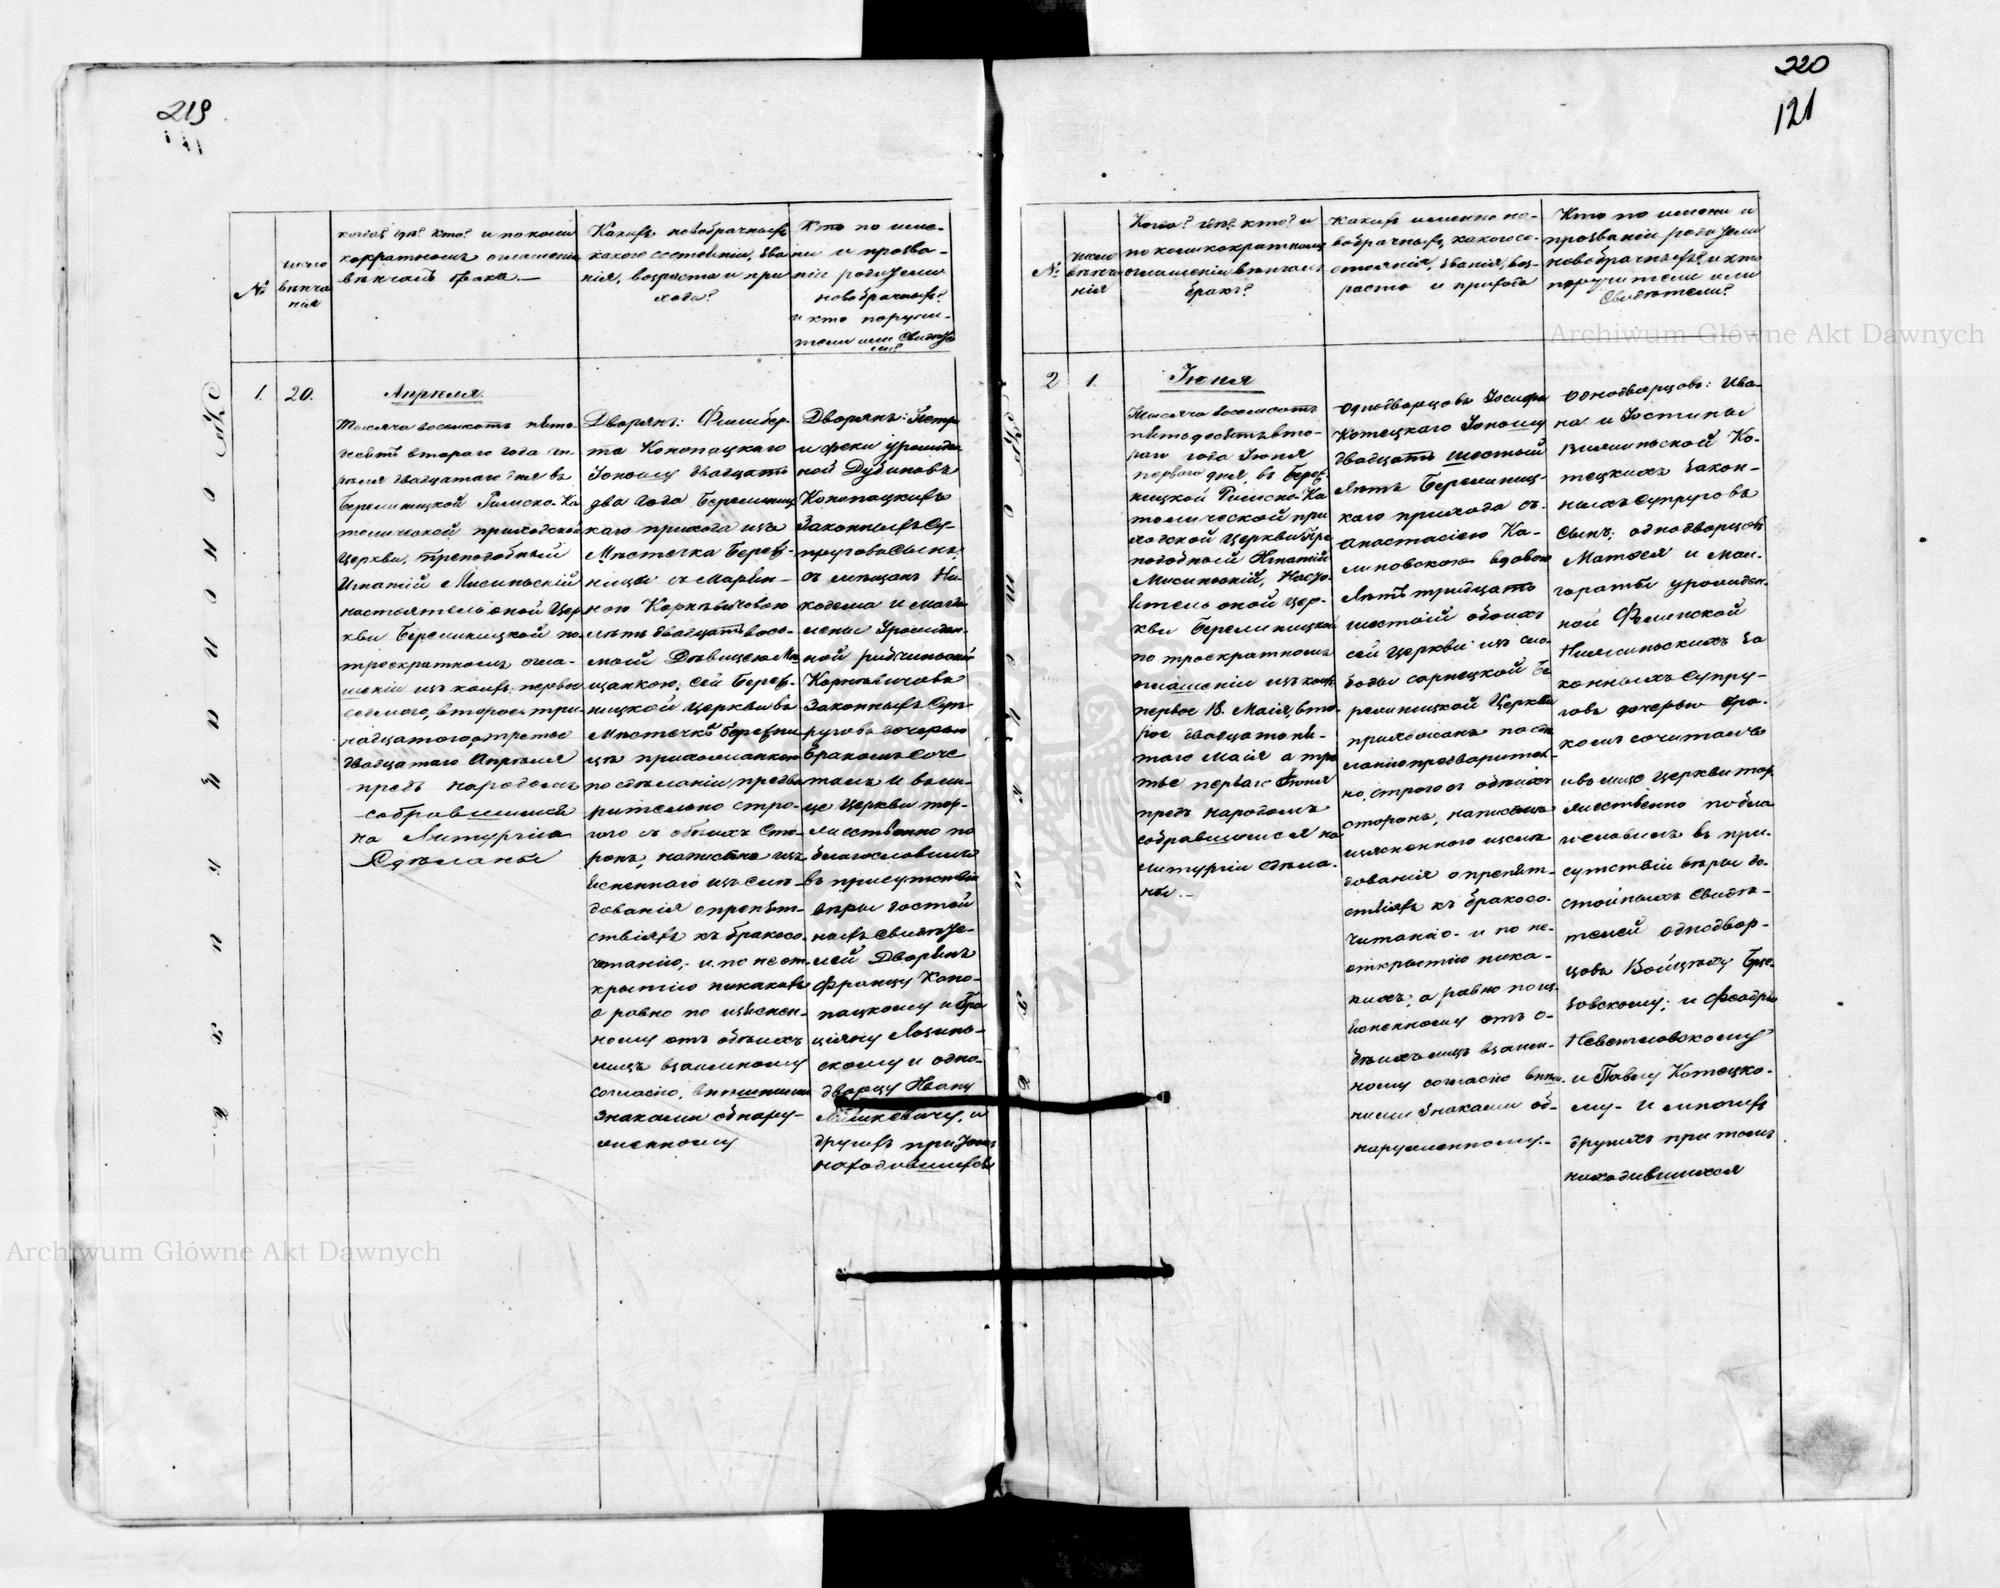 219
220
121
№
число
вѣнча
ния
когда? гдѣ? кто? и по коли
кократномъ оглашении
вѣнчалъ бракъ.—
Какихъ новобрачныхъ
какого состоянія, зва
нія, возраста и при
хода?
Кто по име-
ни и прозва-
нію родители
новобрачныхъ?
и кто поручи-
тели или свидѣте
1.
20.
Апрѣля.
Тысяча восемсотъ пять
десятъ втораго года ап-
рѣля двадцатаго дня въ
Березницкой Римско-Ка
толической приходской
Церкви, Преподобный
Игнатій Мисинскій
настоятель оной Цер
кви Березницкой по
троекратномъ огла-
шеніи изъ коихъ: первое
второе три-
надцатаго, а третое
двадцатаго Апрѣля
предъ народомъ
собравшимся
на Литургію
Сдѣланы
Дворянъ: Филибер-
та Конопацкаго
Юношу двадцать
два года Березниц
каго прихода изъ
Мѣстечка Берез-
ницы съ Маріян-
ною Корневичовою
лѣтъ двадцать вось-
мой Дѣвицею Мѣ
щанкою; сей Берез-
ницкой Церкви въ
Мѣстечкѣ Березни
цѣ прихожанкою
по сдѣланіи предва
рительно стро-
гого съ обѣихъ сто
ронъ, написана изъ
ясненнаго изслѣ-
дованія о препят-
ствіяхъ къ бракосо-
четанію,- и по неот-
крытію никакихъ
а равно по изъяснен-
ному отъ обѣихъ
лицъ взаимному
согласію, внѣшними
знаками обнару-
женному
Дворянъ: Петра
и Феки урожден
ной Дубиновъ
Конопацкихъ
Законныхъ Су-
пруговъ Сынъ,
съ мѣщанъ Ни-
кодема и Магда
лены Урожден-
ной
Корневичовъ
Законныхъ Суп-
руговъ дочерью
бракомъ соче
талъ и въ ли-
це Церкви тор-
жественно по
благословилъ
въ присутствіи
вѣры достой
ныхъ Свидѣте-
лей Дворянъ
Францу Коно-
пацкому и Гра
ціяну Лозин-
скому и одно-
дворцу Ивану
и
другихъ при томъ
находившихся
№
число
вѣнча
нія
Когда? гдѣ? кто? и
по коликократномъ
оглашеніи вѣнчалъ
бракъ?
Какихъ именно но-
вобрачныхъ, какого со-
стоянія, званія, воз-
раста и прихода
Кто по имени и
прозванію родители
новобрачныхъ? и кто
поручители или
Свидѣтели?
2
1.
Іюня
Тысяча восемсотъ
пятьдесятъ вто-
раго года Іюня
перваго дня, въ Берез
ницкой Римско-Ка
толической при
ходской Церкви Пре
подобный Игнатій
Мисинскій, Насто
ятель оной Цер-
кви Березницкой
по троекратномъ
оглашеніи изъ коихъ
первое 18. Маія, вто-
рое двадцать пя-
таго Маія а тре
тье перваго Іюня
предъ народомъ
собравшимся на
литургіи сдѣла-
ны.—
однодворцовъ Іосифа
Котецкаго Юношу
двадцать шестый
лѣтъ Березниц-
каго прихода съ
Анастасіею Ка-
линовскою вдовою
лѣтъ тридцать
шестый обоихъ
сей Церкви изъ сло
боды сарнецкой Бе
резницкой Церкви
прихожанъ по сдѣ
ланію предваритель-
но, строгого съ обѣихъ
сторонъ, написанно
изъясненного изслѣ
дованія о препят-
ствіяхъ къ бракосо-
читанію- и по не-
открытію ника-
кихъ, а равно по изъ
ясненному отъ о-
бѣихъ лицъ взаим-
ному согласію внѣш-
ними знаками об-
наруженному.-
однодворцовъ: Ива-
на и Юстины
Ко-
тецкихъ закон-
ныхъ Супруговъ
Сынъ; однодворцовъ
Матвея и Мал-
гораты урожден-
ной Фелинской
за
конныхъ Супру-
говъ дочерью бра-
комъ сочиталъ
и въ лице Церкви тор
жественно побла
гословилъ въ при-
сутствіи вѣры до-
стойныхъ Свидѣ-
телей однодвор-
цовъ Войцѣху Брже
зовскому; и Феодору
и Павлу Котецко-
му- и многихъ
другихъ при томъ
находившихся
Archiwum Główne Akt Dawnych
Archiwum Główne Akt Dawnych